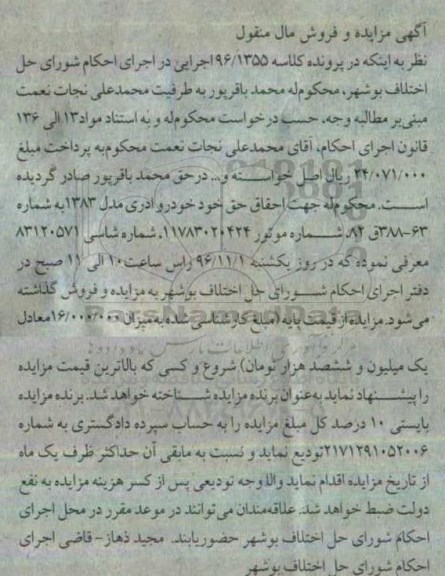 آگهی مزایده و فروش مال منقول
نظر به اینکه در پرونده کلاسه ۹۶/۱۳۵۵ اجرایی در اجرای احکام شورای حل
اختلاف بوشهر، محکوم‌له محمد باقرپور به طرفیت محمدعلی نجات نعمت
مبنی‌بر مطالبه وجه، حسب درخواست محکوم‌له و به استناد مواد ۱۳ الی ۱۳۶
قانون اجرای احکام، آقای محمدعلی نجات نعمت محکوم‌به پرداخت مبلغ
۲۴/۰۷۱/۰۰۰ ریال اصل خواسته و... درحق محمد باقرپور صادر گردیده
است. محکوم‌له جهت احقاق حق خود خودرو آردی مدل ۱۳۸۳ به شماره
۶۳-۳۸۸ق ۸۲ شماره موتور ۱۱۷۸۳۰۲۰۴۲۴، شماره شاسی ۸۳۱۲۰۵۷۱
معرفی نموده که در روز یکشنبه ۹۶/۱۱/۱ راس ساعت ۱۰ الی ۱۱ صبح در
دفتر اجرای احکام شورای حل اختلاف بوشهر به مزایده و فروش گذاشته
می‌شود. مزایده از قیمت پایه (مبلغ کارشناسی شده به میزان ۱۶/۰۰۰/۰۰۰ معادل
یک میلیون و ششصد هزار تومان) شروع و کسی که بالاترین قیمت مزایده
را پیشنهاد نماید به‌عنوان برنده مزایده شناخته خواهد شد. برنده مزایده
بایستی ۱۰ درصد کل مبلغ مزایده را به حساب سپرده دادگستری به شماره
۲۱۷۱۲۹۱۰۵۲۰۰۶ تودیع نماید و نسبت به مابقی آن حداکثر ظرف یک ماه
از تاریخ مزایده اقدام نماید والا وجه تودیعی پس از کسر هزینه مزایده به نفع
دولت ضبط خواهد شد. علاقه‌مندان می‌توانند در موعد مقرر در محل اجرای
احکام شورای حل اختلاف بوشهر حضور یابند. مجید دهاز- قاضی اجرای
احکام شورای حل اختلاف بوشهر